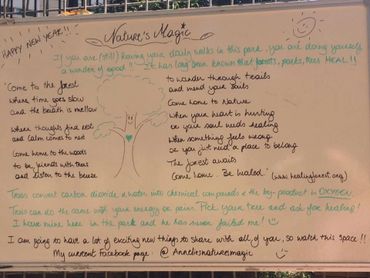 HAPPY NEW YEAR!!
Nature's Magic
If you are (still) having your daily walks in this park, you are doing yourself
a wonder of good!! It has long been known that forests, parks, trees HEAL!!
Come to the forest
where time goes slow
and the breath is mellow
where thoughts find rest
and calm comes to nest
Come home to the woods
to be friends with trees
and listen to the breeze
to wander through trails
and mend your souls
Come home to Nature
When your heart is hurting
or your soul needs healing
when something feels wrong
or you just need a place to belong
The forest awaits
Come home. Be healed. (www.healingforest.org)
Trees convert carbon dioxide & water into chemical compounds & the by-product is OXYGEN.
Trees can do the same with your energy or pain. Pick your tree and ask for healing!
I have mine here in the park and he has never failed me!
I am going to have a lot of exciting new things to share with all of you, so watch this space!!
My current facebook page @ Anneliesnaturesmagic